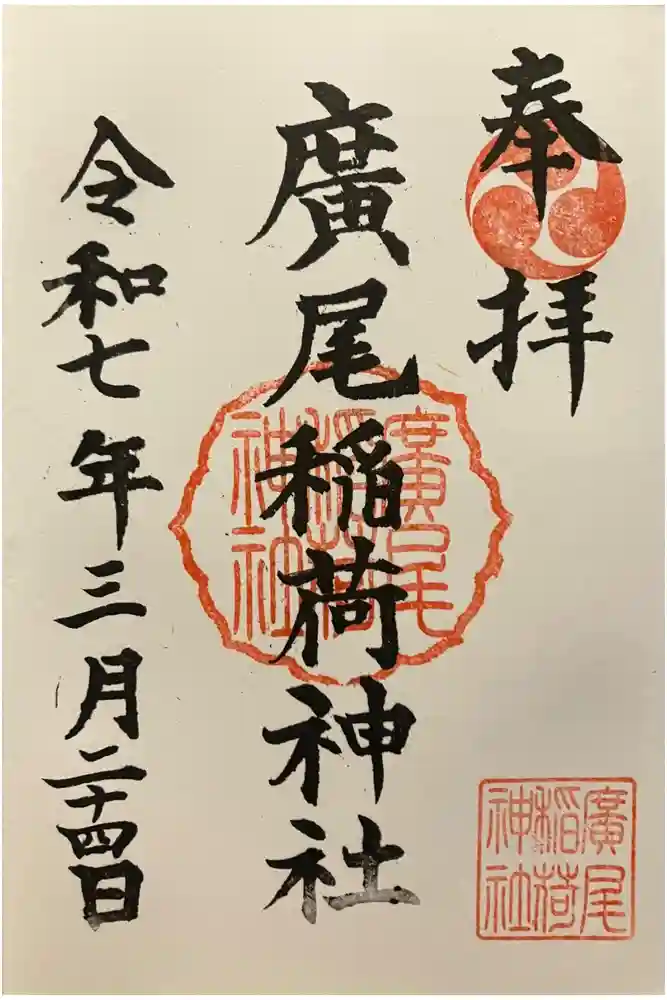 奉拝
廣尾稲荷神社
廣尾
稲荷
神社
令和七年三月二十四日
廣尾
稲荷
神社